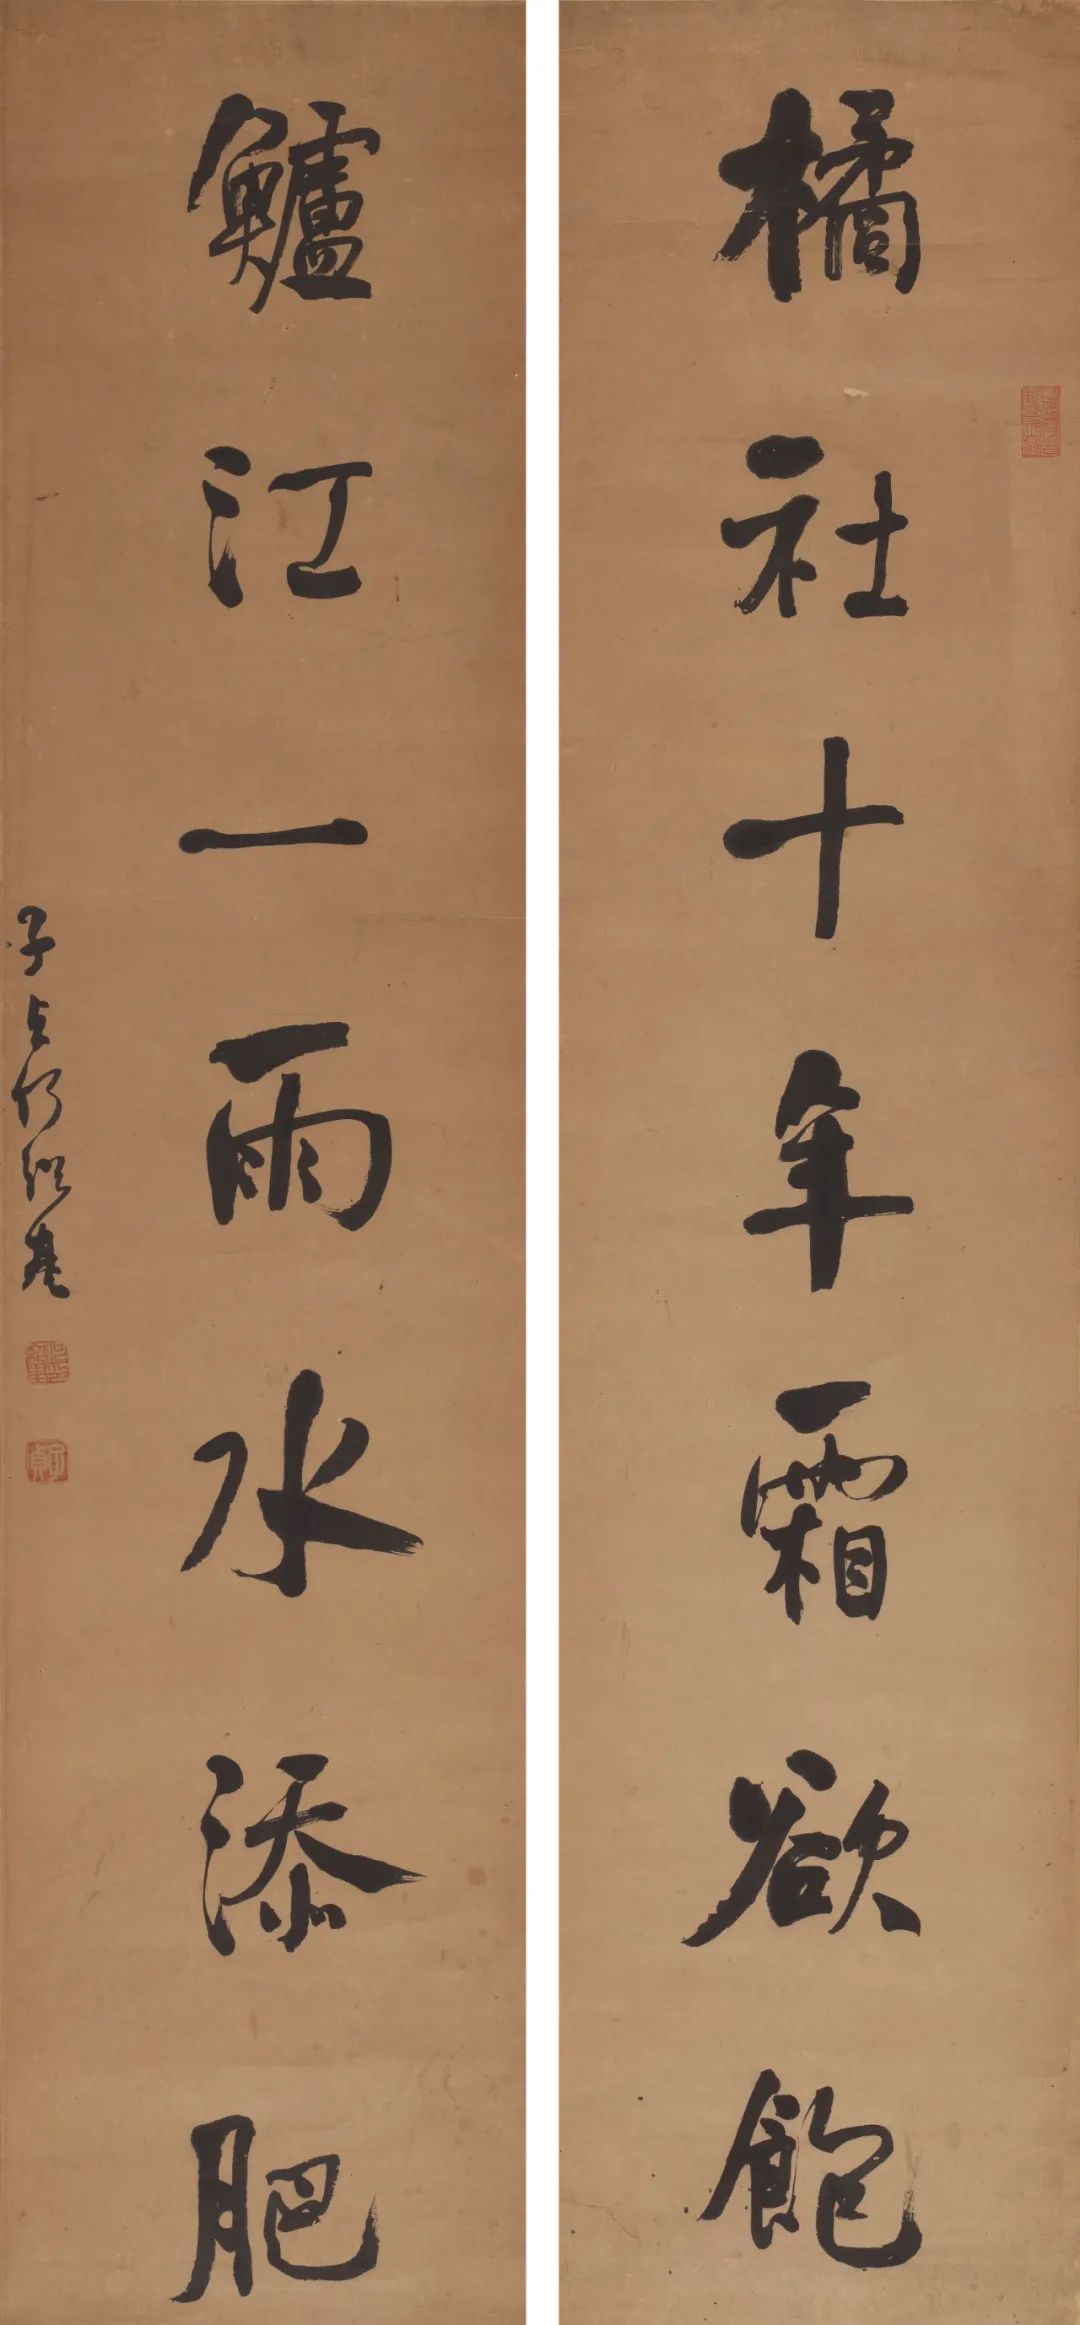 橘社十年霜欲飽
鱸江一雨水添肥
子貞何紹基
子貞